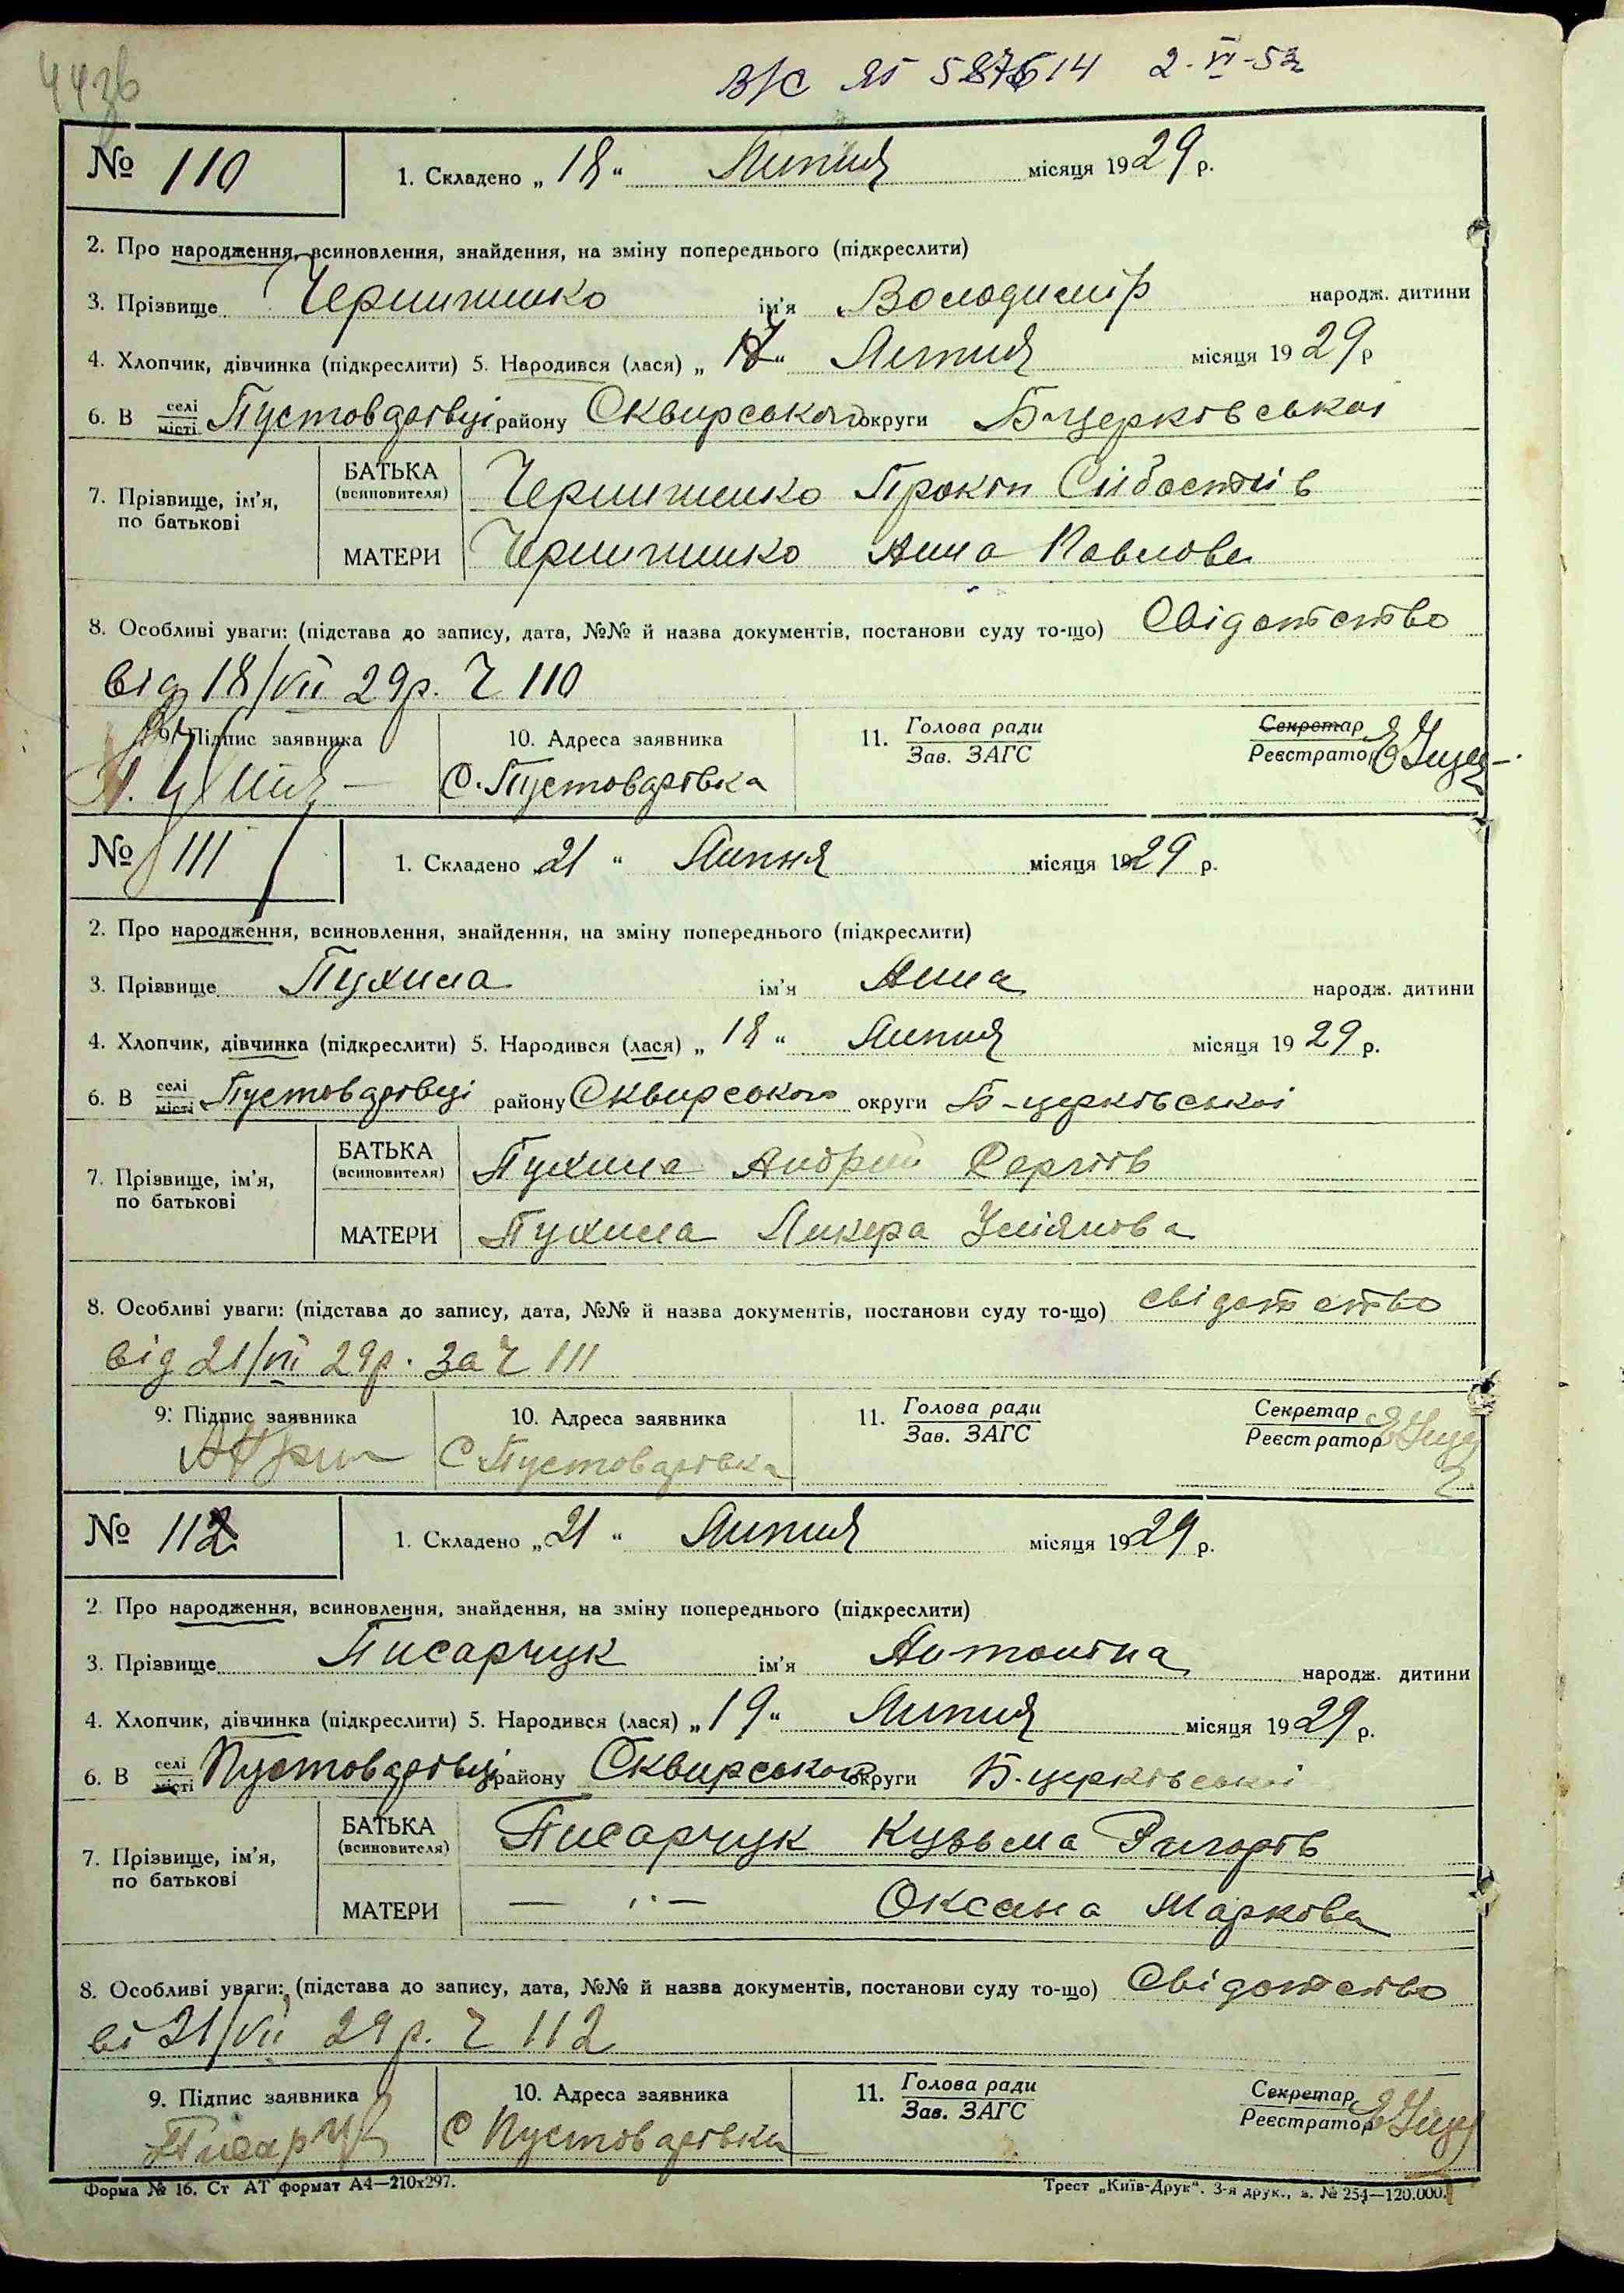 44зв
В/С ЯБ 587614 2-VI-53
№ 110 1. Складено „ 18 “ Липня місяця 1929 р.
2. Про народження, всиновлення, знайдення, на зміну попереднього (підкреслити)
3. Прізвище Чернишенко ім'я Володимір народж. дитини
4. Хлопчик, дівчинка (підкреслити) 5. Народився (лася) „ 17 “ Липня місяця 1929 р
6. В селі/місті Пустоварівці району Сквирського округи Б-церківськоі
7. Прізвище, ім'я, по батькові
БАТЬКА (всиновителя) Чернишенко Прокіп
МАТЕРИ Чернишенко Анна Павлова
8. Особливі уваги: (підстава до запису, дата, №№ й назва документів, постанови суду то-що) Свідотство
від 18/VII 29р. Ч 110
9. Підпис заявника 10. Адреса заявника 11. Голова ради/Зав. ЗАГС Секретар/Реєстратор
С. Пустоварівка
№ 111 1. Складено 21 “ Липня місяця 1929 р.
2. Про народження, всиновлення, знайдення, на зміну попереднього (підкреслити)
3. Прізвище Пухила ім'я Анна народж. дитини
4. Хлопчик, дівчинка (підкреслити) 5. Народився (лася) „ 18 “ Липня місяця 1929 р.
6. В селі/місті Пустоварівці району Сквирського округи Б-церківськоі
7. Прізвище, ім'я, по батькові
БАТЬКА (всиновителя) Пухила Андрій Сергіїв
МАТЕРИ Пухила Ликера
8. Особливі уваги: (підстава до запису, дата, №№ й назва документів, постанови суду то-що) свідотство
від 21/VII 29р. за Ч 111
9. Підпис заявника 10. Адреса заявника 11. Голова ради/Зав. ЗАГС Секретар/Реєстратор
С. Пустоварівка
№ 112 1. Складено „ 21 “ Липня місяця 1929 р.
2. Про народження, всиновлення, знайдення, на зміну попереднього (підкреслити)
3. Прізвище Писарчук ім'я Антоніна народж. дитини
4. Хлопчик, дівчинка (підкреслити) 5. Народився (лася) „ 19 “ Липня місяця 1929 р.
6. В селі/місті Пустоварівці району Сквирського округи Б.церківськоі
7. Прізвище, ім'я, по батькові
БАТЬКА (всиновителя) Писарчук Кузьма Григорів
МАТЕРИ — ״ — Оксана Маркова
8. Особливі уваги: (підстава до запису, дата, №№ й назва документів, постанови суду то-що) Свідотство
ві 21/VII 29р. Ч 112
9. Підпис заявника 10. Адреса заявника 11. Голова ради/Зав. ЗАГС Секретар/Реєстратор
Писарчук С Пустоварівка
Форма № 16. Ст АТ формат А4—210х297. Трест „Київ-Друк“. 3-я друк., з. № 254—120.000.